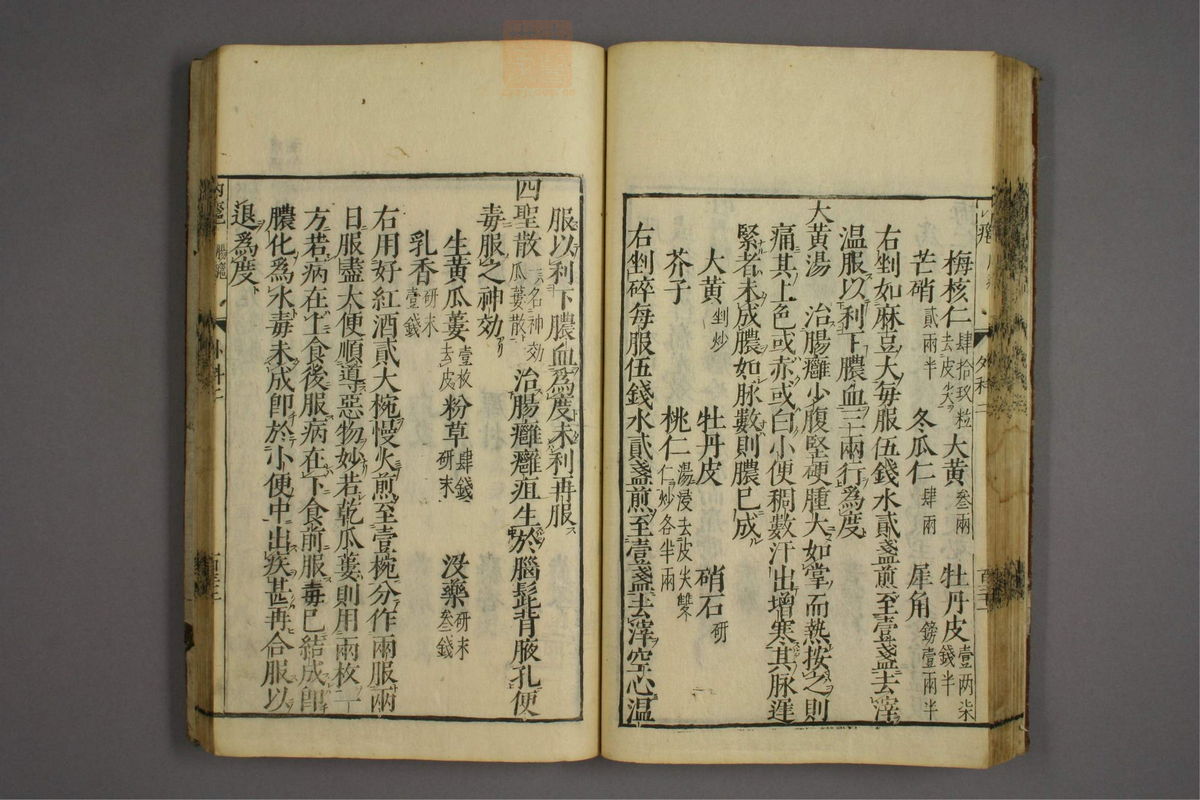 梅核仁肆拾玖粒去皮尖 大黄叁兩 牡丹皮壹两柒錢半
芒硝貳兩半 冬瓜仁肆兩 犀角鎊壹兩半
右剉如麻豆大每服伍錢水貳盞煎至壹盞去滓
温服以利下膿血三兩行爲度
大黄湯 治腸癰少腹堅硬腫大如掌而熱按之則
痛其上色或赤或白小便稠數汗出增寒其脉遲
緊者未成膿如脉數則膿已成
大黄剉炒 牡丹皮 硝石研
芥子 桃仁湯浸去皮尖雙仁炒各半兩
右剉碎每服伍錢水貳盞煎至壹盞去滓空心温
服以利下膿血爲度未利再服
四聖散一名神効瓜蔞散 治腸癰癰疽生於腦髭背腋乳便
毒服之神効
生黄瓜蔞壹枚去皮 粉草肆錢研末 没藥研末叁錢
乳香研末壹錢
右用好紅酒貳大椀慢火煎至壹椀分作兩服兩
日服盡大便順導惡物妙若乾瓜蔞則用兩枚一
方若病在上食後服病在下食前服毒已結成即
膿化爲水毒未成即於小便中出疾甚再合服以
退爲度
内癰 腸癰 外科二